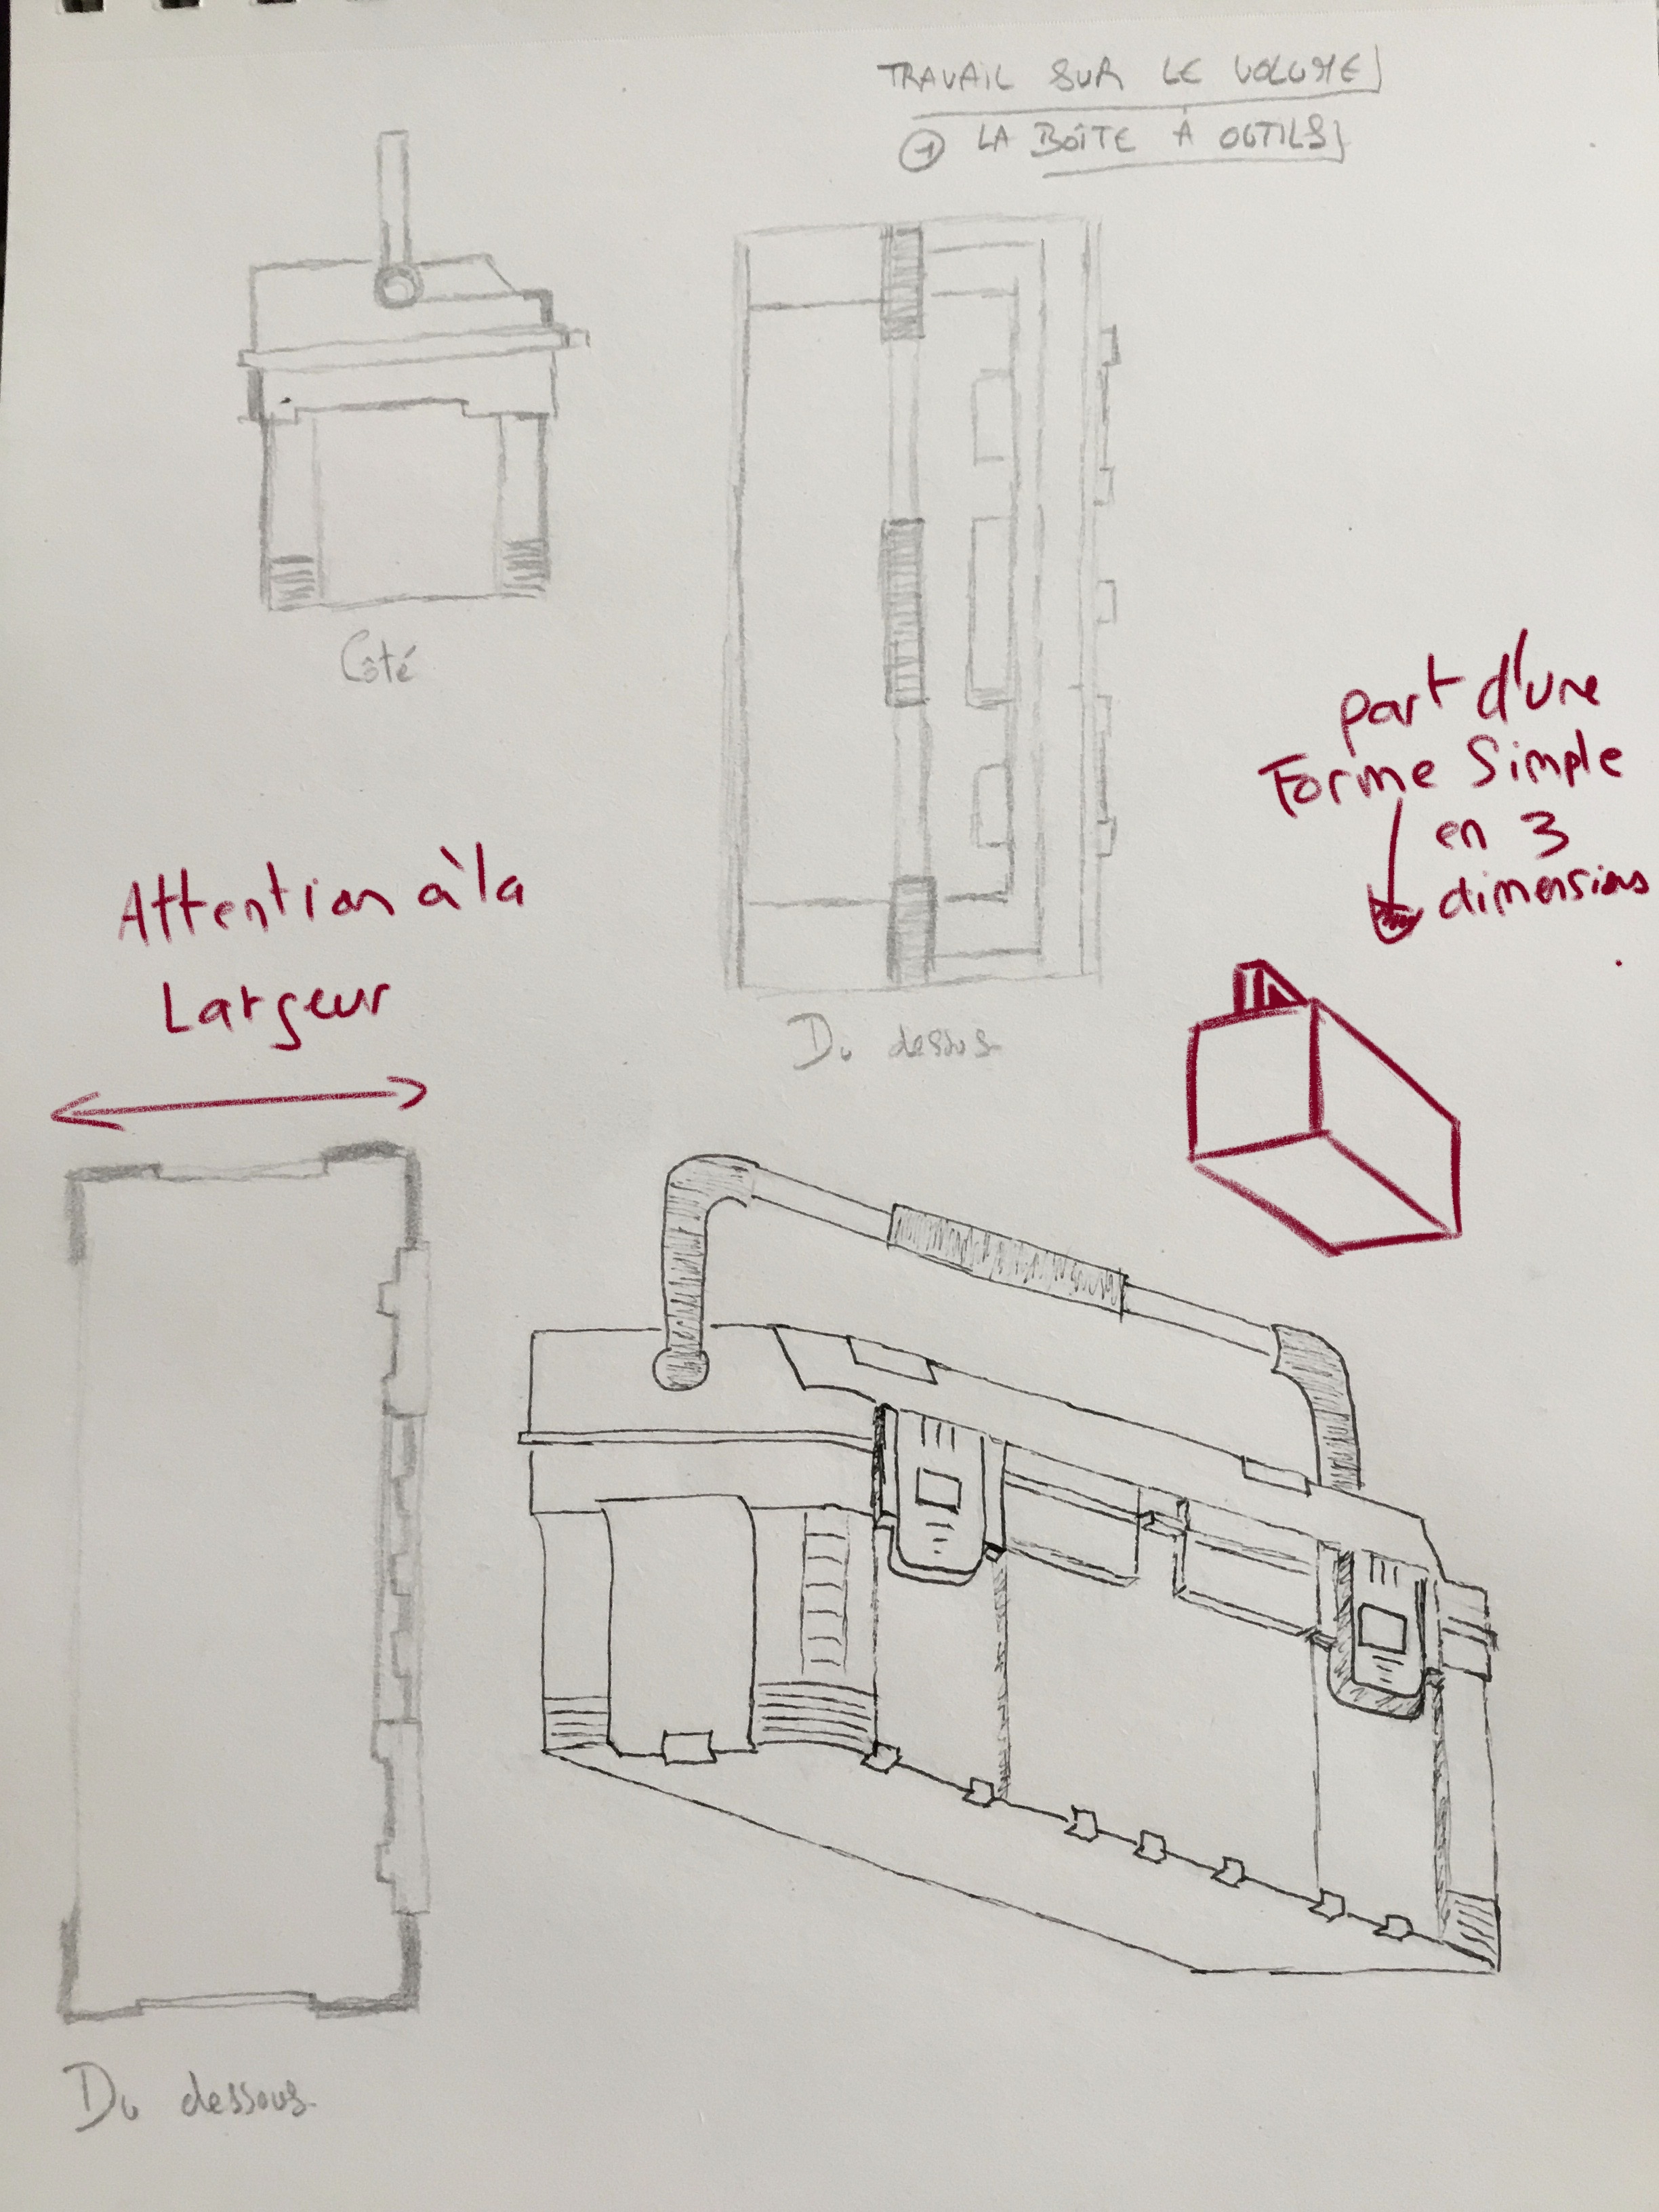 TRAVAIL SUR LE VOLUME
1 LA BOÎTE À OUTILS
Côté
Du dessus
part d'une
Forme Simple
en 3
dimensions
Attention à la
Largeur
Du dessous